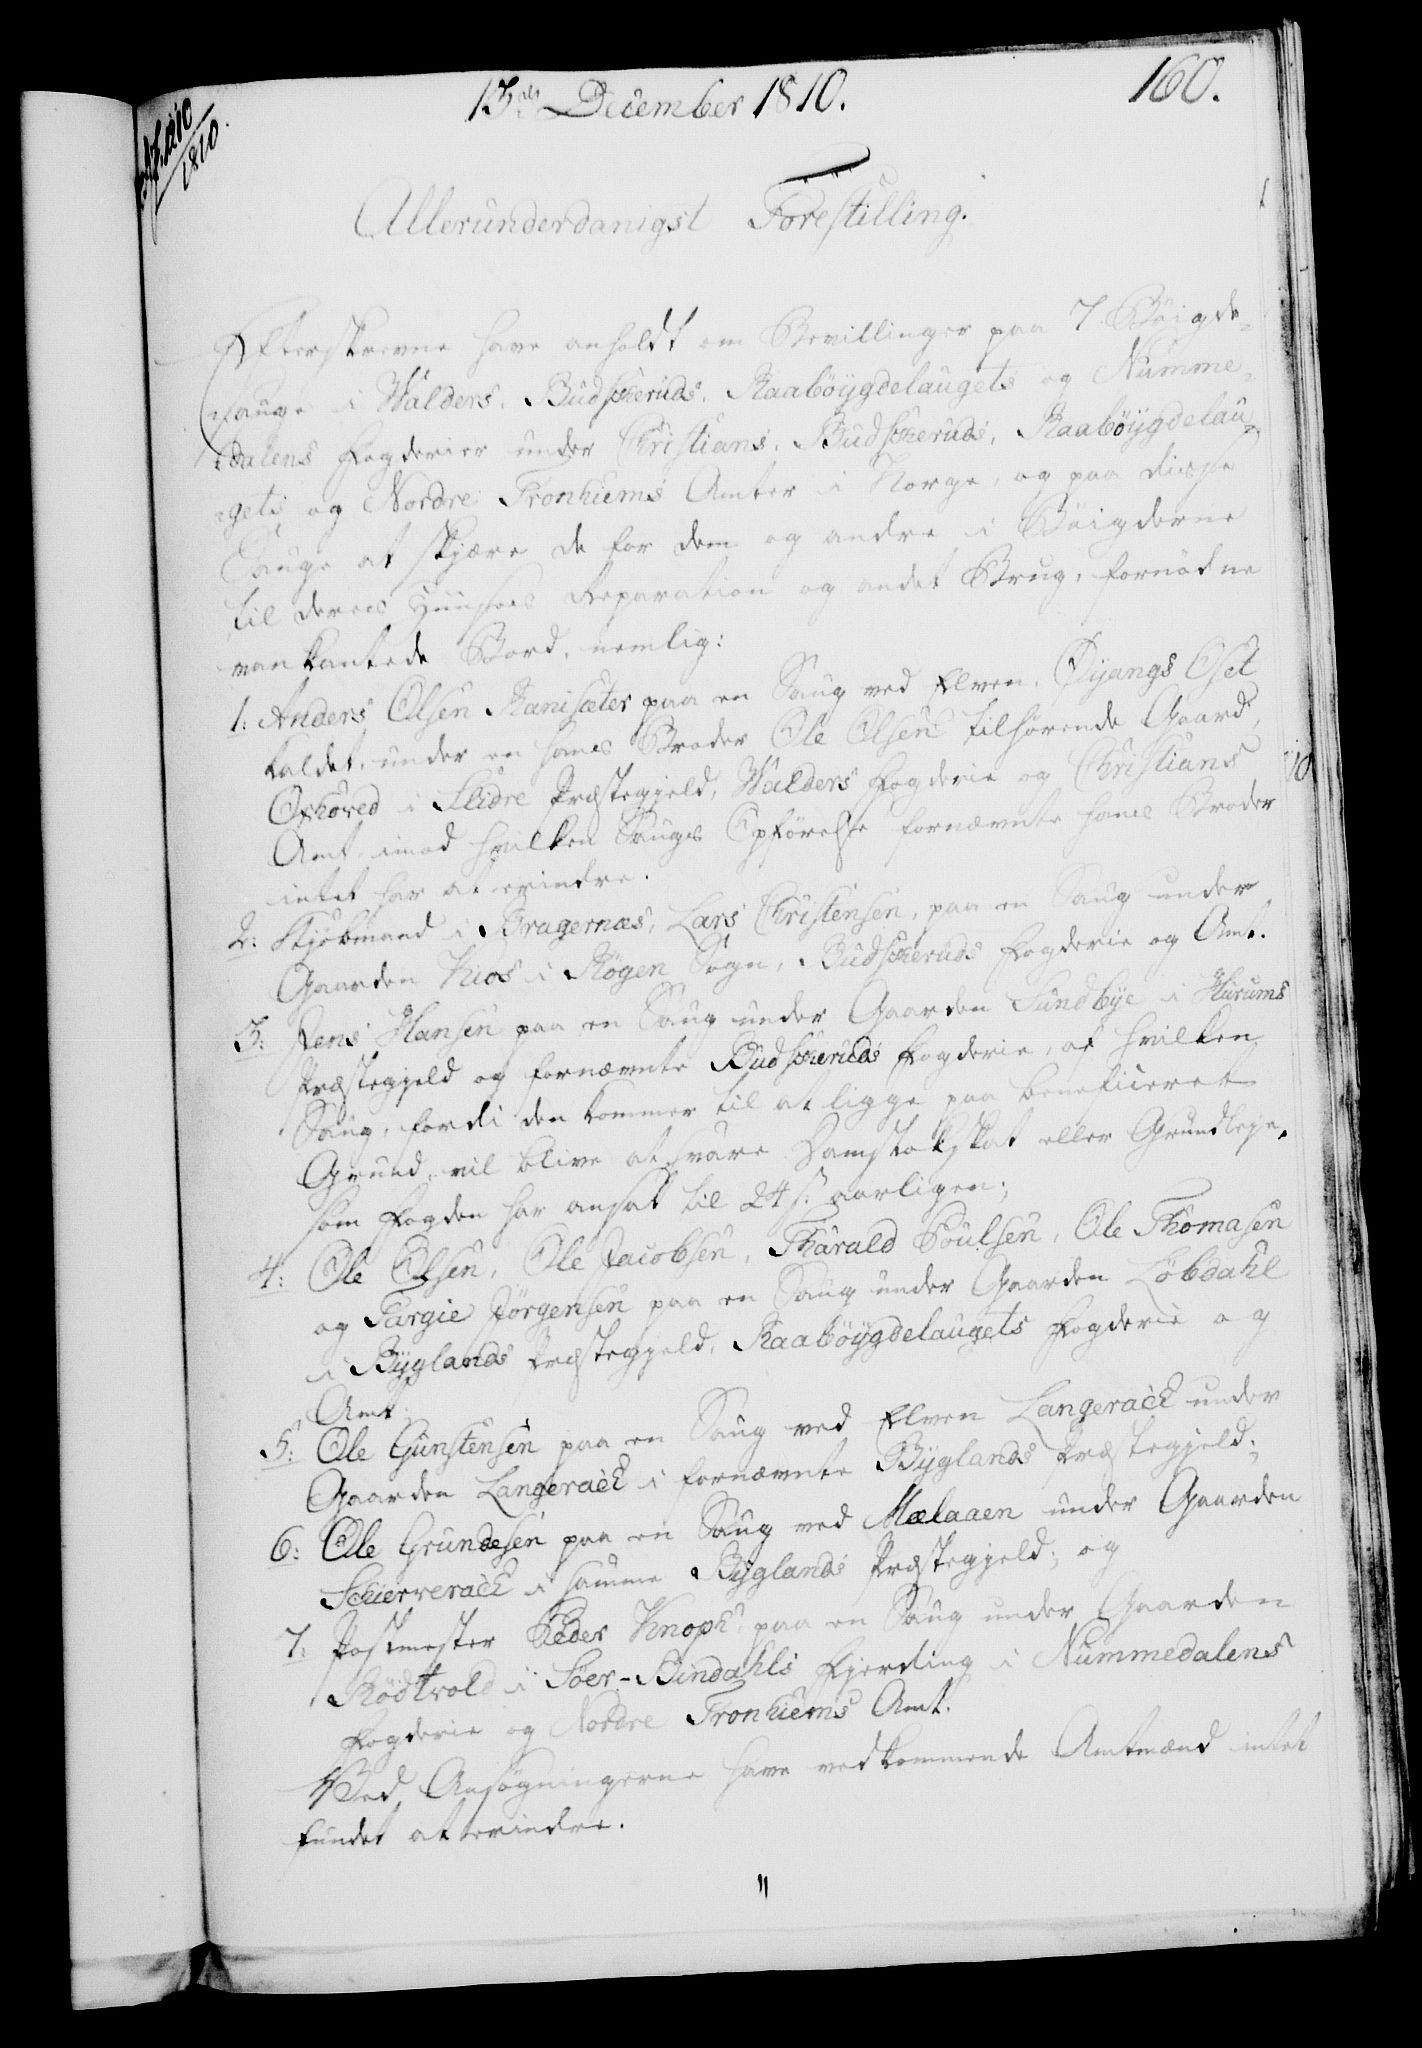 13de December 1810.
160.
1810.
Allerunderdanigst Forestilling.
Efterskrevne have anholdt om Bevillinger paa 7 Böigde-
sauge i Walders, Budscheruds, Raabøygdelaugets og Numme-
dalens Fogderier under Christians, Budscheruds, Raabøygdelau-
gets og Nordre Tronhiems Amter i Norge, og paa disse
Sauge at skjære de for dem og andre i Böigderne
til deres Huuses Reparation og andet Brug, fornødne
vankantede Bord, nemlig:
1: Anders Olsen Ranisæter paa en Saug ved Elven, Øyangs Oset
kaldet, under en hans Broder Ole Olsen tilhørende Gaard,
Oxhøved i Slidre Præstegjeld, Walders Fogderie og Christians
Amt, imod hvilken Saugs Opførelse fornævnte hans Broder
intet har at erindre.
2: Kjøbmand i Bragernæs, Lars Christensen, paa en Saug under
Gaarden Kios i Røgen Sogn, Budscheruds Fogderie og Amt.
3: Jens Hansen paa en Saug under Gaarden Sundbye i Hurums
Præstegjeld og fornævnte Budscheruds Fogderie, af hvilken
Saug, fordi den kommer til at ligge paa beneficeret
Grund, vil blive at svare Damstokskat eller Grundleje,
som Fogden har ansat til 24 s. aarligen;
4: Ole Olsen, Ole Jacobsen, Tharald Poulsen, Ole Thomasen
og Targie Jørgensen paa en Saug under Gaarden Løbdahl
i Byglands Præstegjeld, Raabøygdelaugets Fogderie og
Amt;
5: Ole Gunstensen paa en Saug ved Elven Langerack under
Gaarden Langerack i fornævnte Byglands Præstegjeld;
6: Ole Grundesen paa en Saug ved Mælaaen under Gaarden
Schierverack i samme Byglands Præstegjeld; og
7: Postmester Peder Knoph paa en Saug under Gaarden
Rødtvold i Söer-Bindahls Fjerding i Nummedalens
Fogderie og Nordre Tronhiems Amt.
Ved Ansøgningerne have vedkommende Amtmænd intet
fundet at erindre.